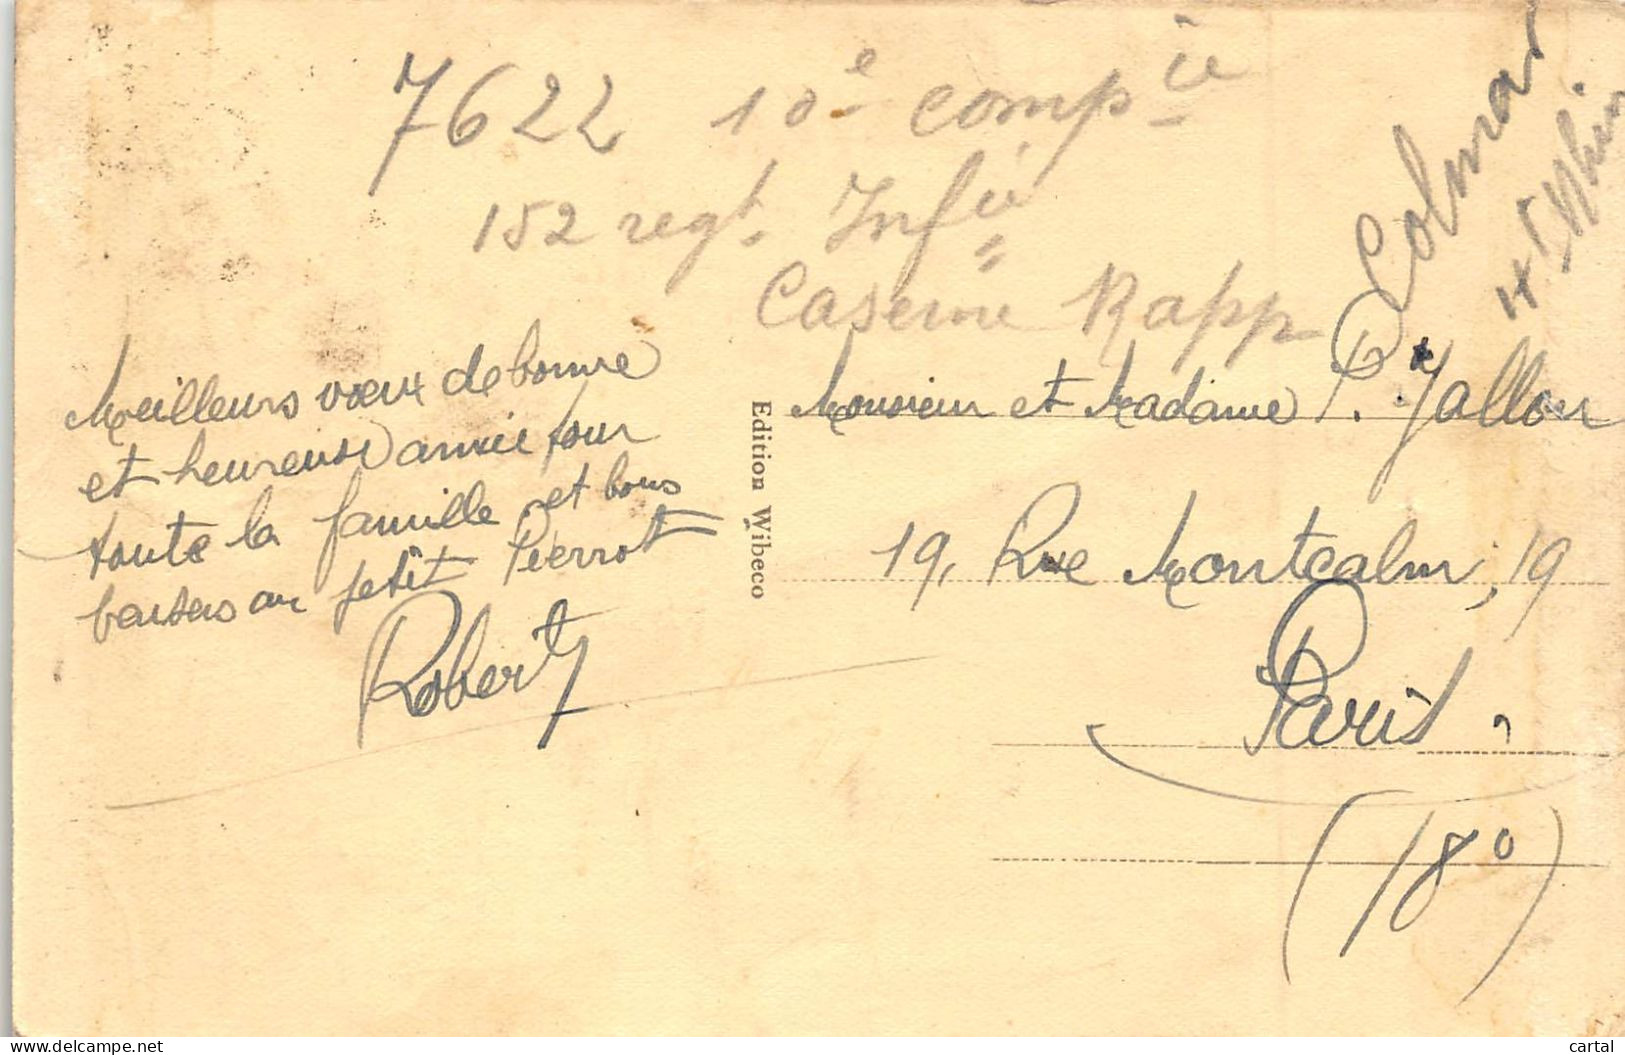 7622 10e compie
152 regt. Infie
Caserne Rapp
Colmar
Ht Rhin
Meilleurs vœux de bonne
et heureuse année pour
toute la famille et bons
baisers au petit Pierrot
Robert
Edition Wibeco
Monsieur et Madame P. Jallon
19, Rue Montcalm, 19
Paris
(18°)
www.delcampe.net
cartal